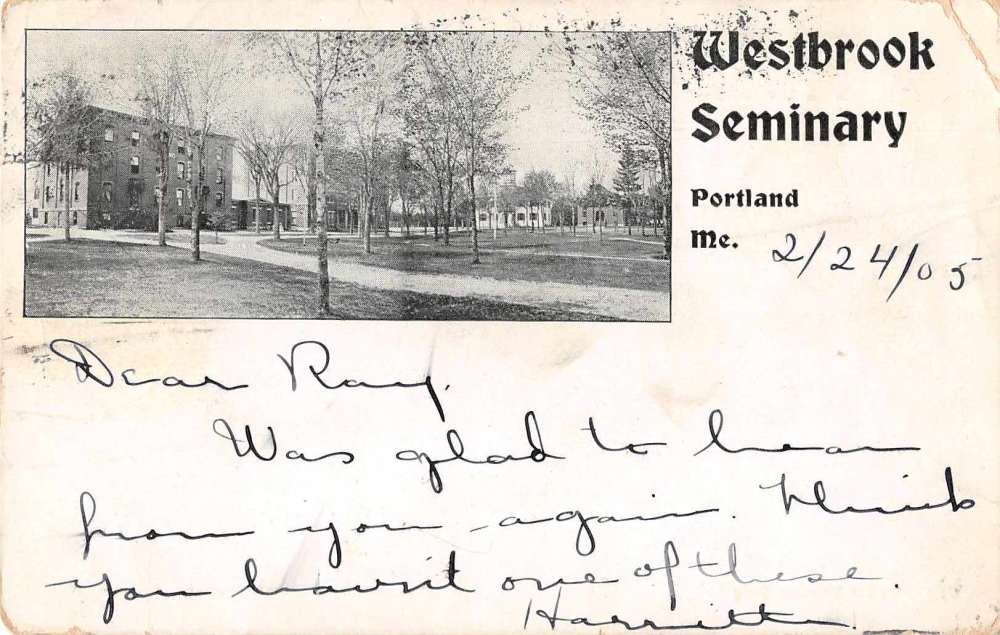 Westbrook
Seminary
Portland
Me.
2/24/05
Dear Ray.
Was glad to hear
from you again. Think
you havn't one of these.
Harriett.